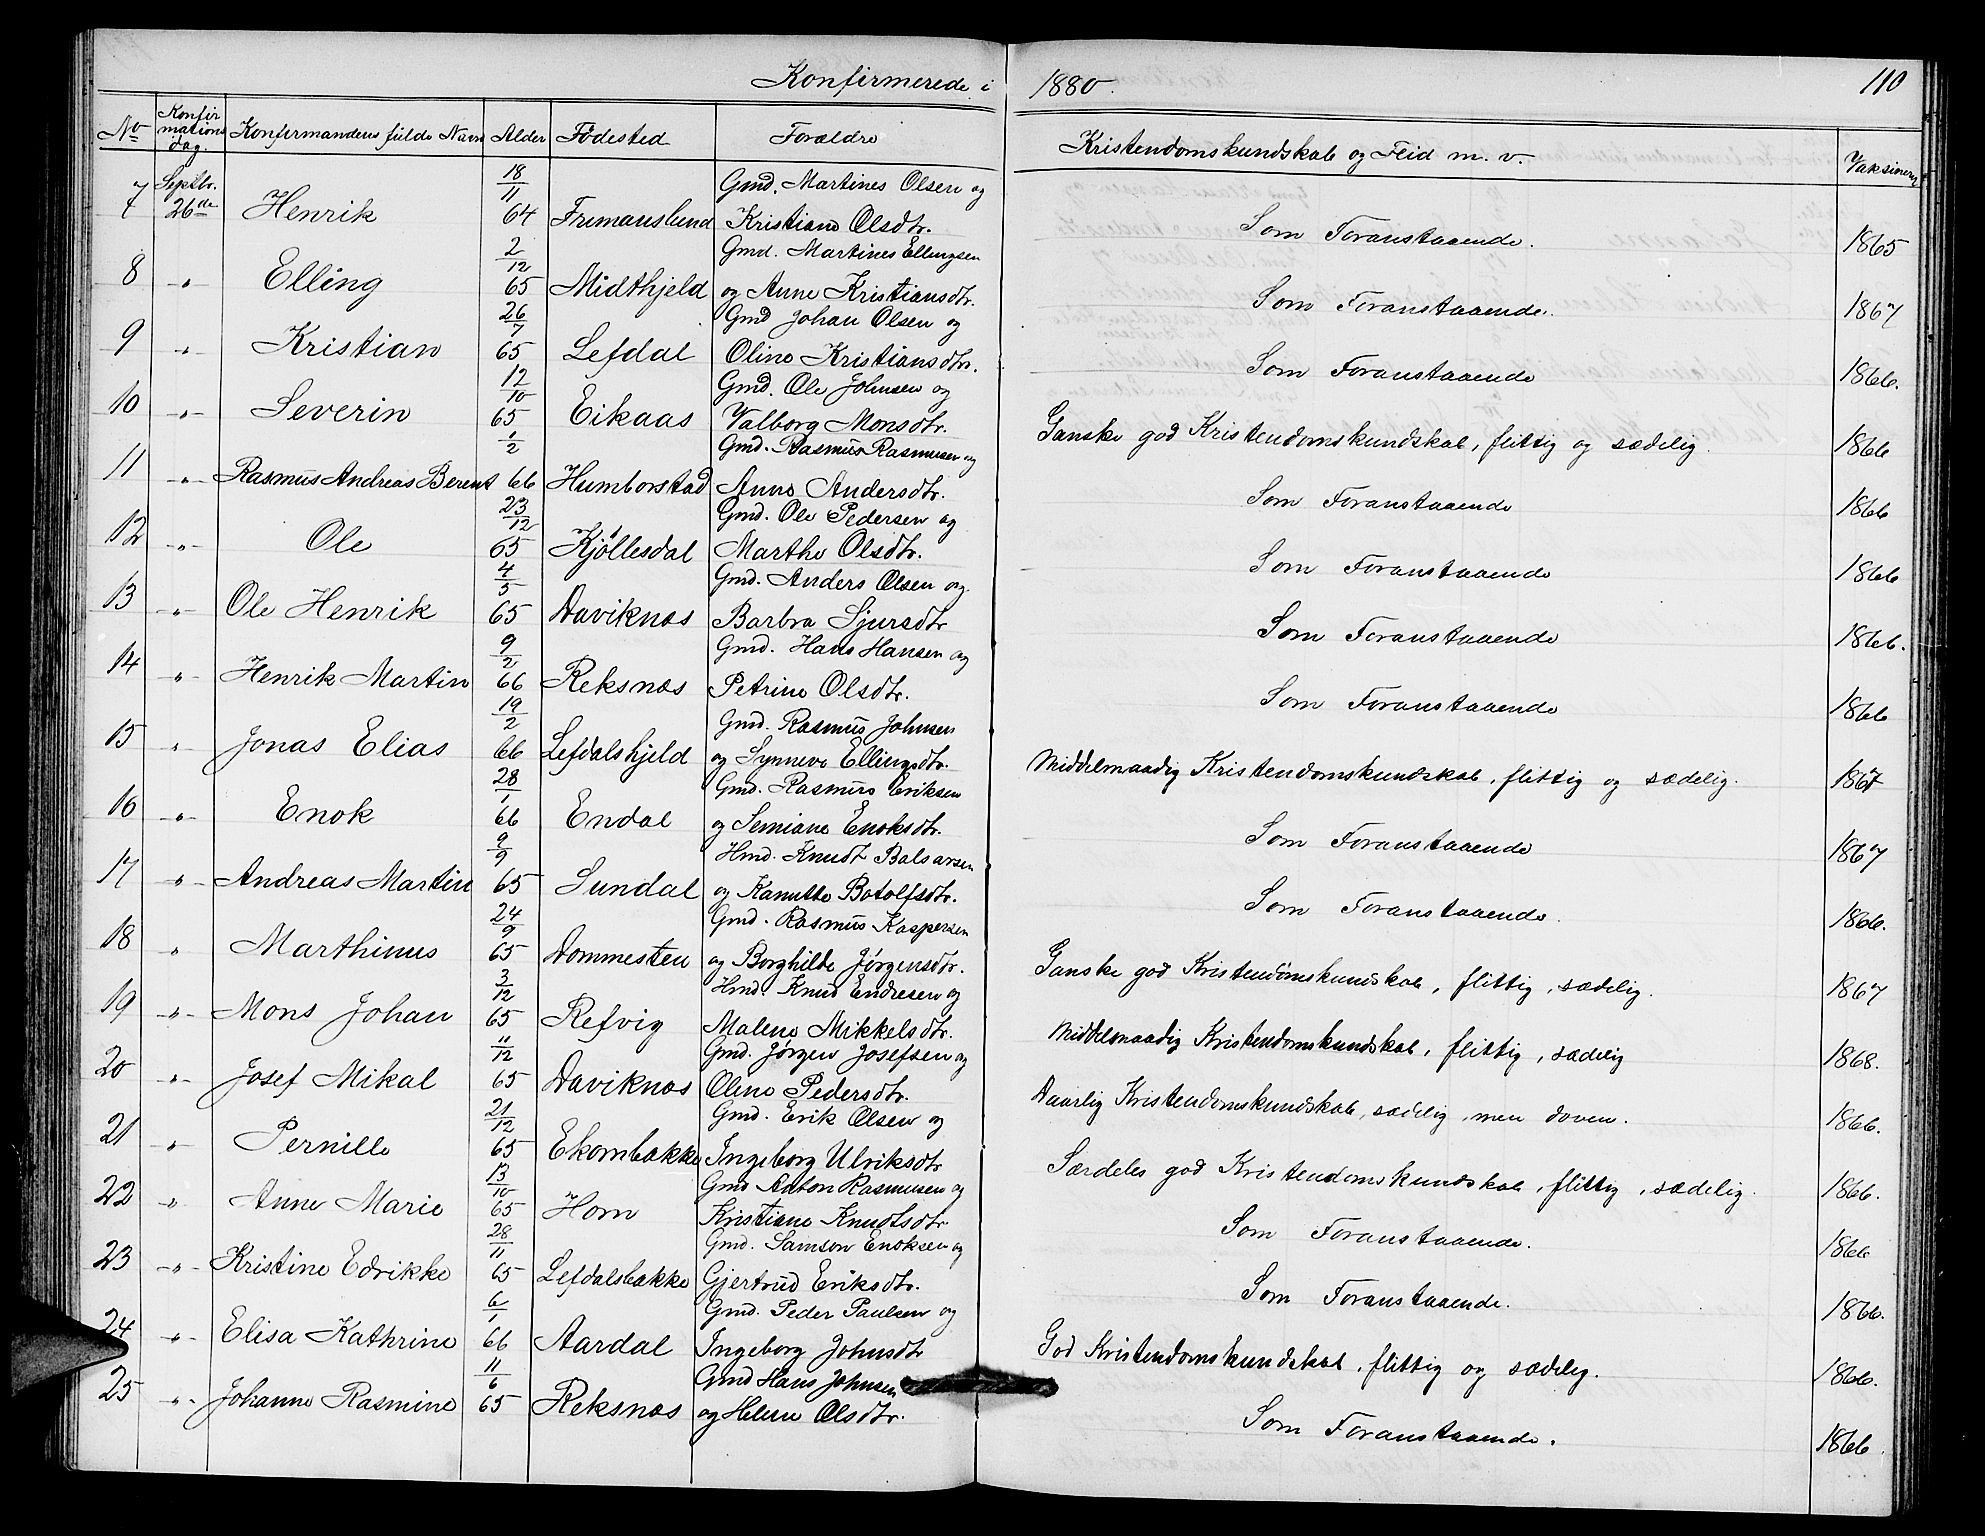 Konfirmerede i 1880. 110
No Konfirmationsdag. Konfirmandens fulde Navn Alder Fødested Forældre Kristendomskundskab og Flid m. v. Vaksinert
7 Septbr. 26de Henrik 18/11 64 Frimanslund Gmd. Martines Olsen og Kristiane Olsdtr. Som Foranstaaende. 1865
8 " Elling 2/12 65 Midthjeld Gmd. Martines Ellingsen og Anne Kristiansdtr. Som Foranstaaende. 1867
9 " Kristian 26/7 65 Lefdal Gmd Johan Olsen og Oline Kristiansdtr. Som Foranstaaende 1866.
10 " Severin 12/10 65 Eikaas Gmd. Ole Johnsen og Valborg Monsdtr. Ganske god Kristendomskundskab, flittig og sædelig. 1866
11 " Rasmus Andreas Berent 1/2 66 Humborstad Gmd. Rasmus Rasmusen og Anne Andersdtr. Som Foranstaaende 1866
12 " Ole 23/12 65 Kjøllesdal Gmd. Ole Pedersen og Marthe Olsdtr. Som Foranstaaende 1866
13 " Ole Henrik 4/5 65 Daviknæs Gmd. Anders Olsen og Barbra Sjursdtr Som Foranstaaende 1866.
14 " Henrik Martin 9/2 66 Reksnæs Gmd. Hans Hansen og Petrine Olsdtr. Som Foranstaaende 1866
15 " Jonas Elias 19/2 66 Lefdalshjeld Gmd. Rasmus Johnsen og Synneve Ellingsdtr. Middelmaadig Kristendomskundskab, flittig og sædelig. 1867
16 " Enok 28/1 66 Endal Gmd. Rasmus Eriksen og Semiane Enoksdtr. Som Foranstaaende 1867
17 " Andreas Martin 9/9 65 Sundal Hmd. Knudt Balsarsen og Kanutte Botolfsdtr. Som Foranstaaende. 1866.
18 " Marthinus 24/9 65 Dommesten Gmd. Rasmus Kaspersen og Borghilde Jørgensdtr. Ganske god Kristendomskundskab, flittig, sædelig. 1867
19 " Mons Johan 3/12 65 Refvig Hmd. Knud Endresen og Malene Mikkelsdtr. Middelmaadig Kristendomskundskab, flittig, sædelig 1868.
20 " Josef Mikal 11/12 65 Daviknæs Gmd. Jørgen Josefsen og Oline Pedersdtr. Daarlig Kristendomskundskab, sædelig, men doven. 1866.
21 " Pernille 21/12 65 Ekornbakke Gmd. Erik Olsen og Ingeborg Ulriksdtr Særdeles god Kristendomskundskab, flittig, sædelig. 1866.
22 " Anne Marie 13/10 65 Horn Gmd Anton Rasmusen og Kristiane Knudtsdtr Som Foranstaaende. 1866
23 " Kristine Edrikke 28/11 65 Lefdalsbakke Gmd. Samson Enoksen og Gjertrud Eriksdtr. Som Foranstaaende. 1866.
24 " Elisa Kathrine 6/1 66 Aardal Gmd. Peder Paulsen og Ingeborg Johnsdtr God Kristendomskundskab, flittig og sædelig. 1866.
25 " Johanne Rasmine 11/6 65 Reksnæs Gmd Hans Johnsen og Helene Olsdtr. Som Foranstaaende. 1866